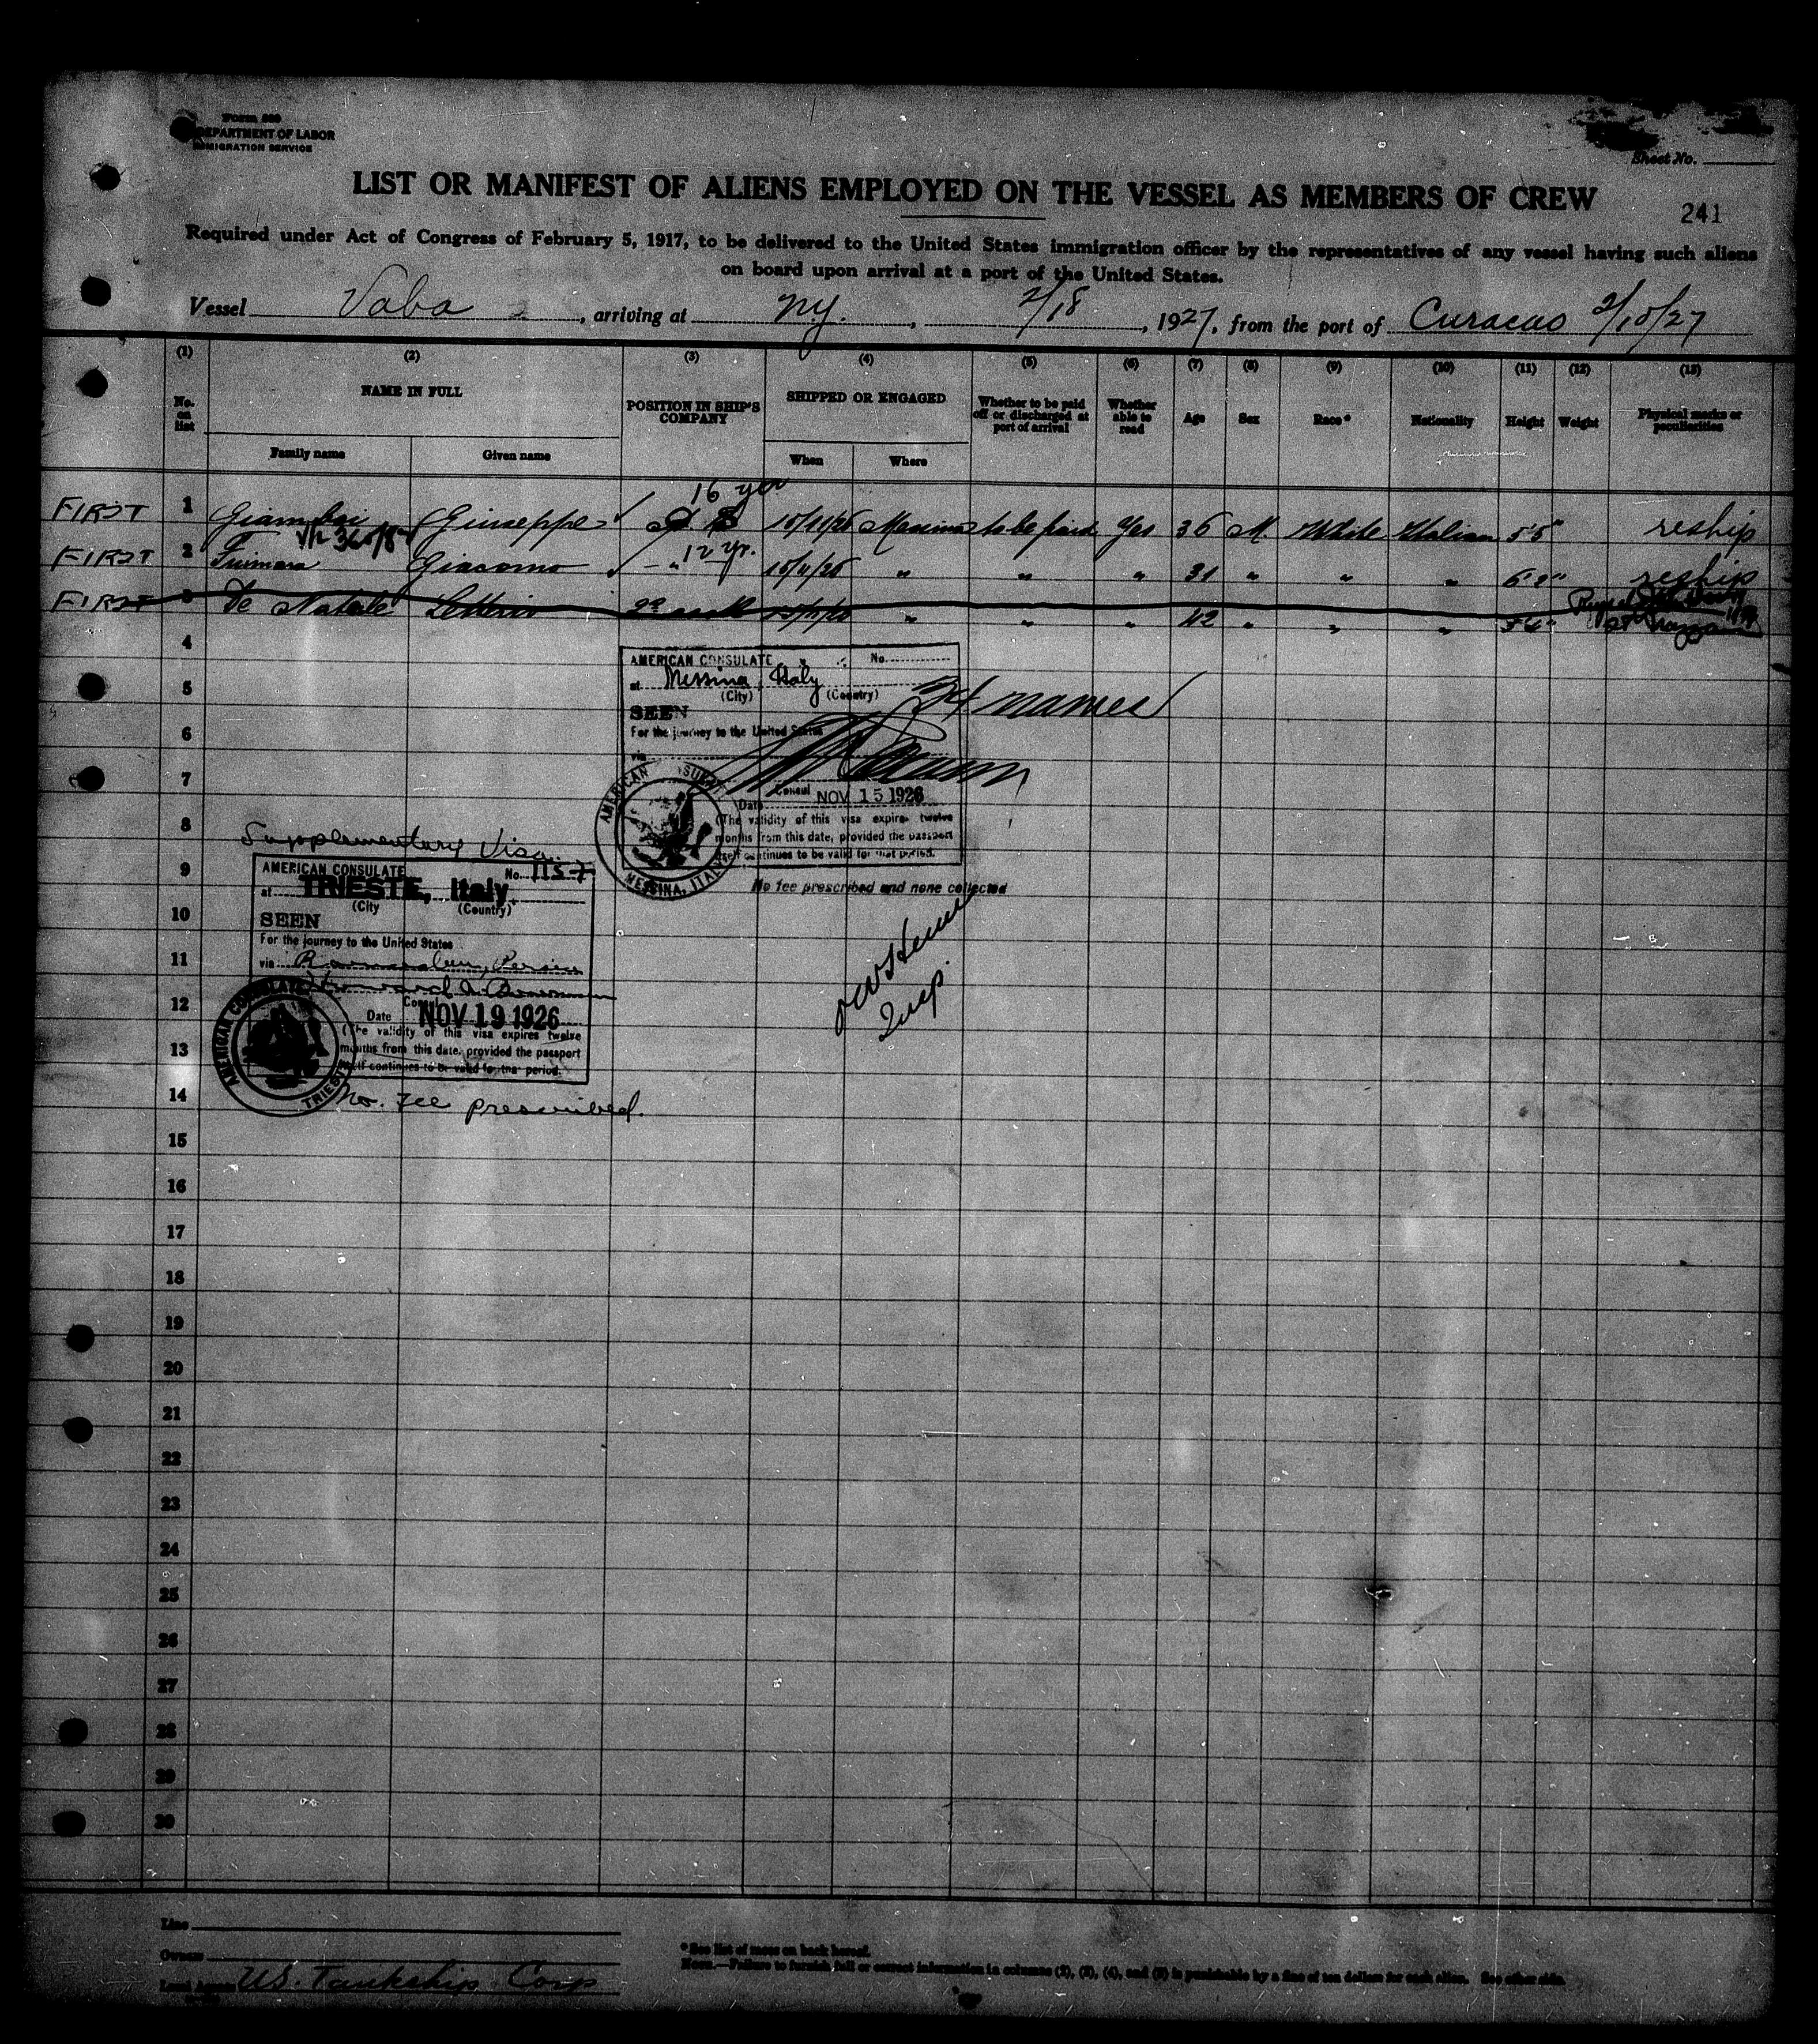 Form 689
DEPARTMENT OF LABOR
IMMIGRATION SERVICE
Sheet No.
LIST OR MANIFEST OF ALIENS EMPLOYED ON THE VESSEL AS MEMBERS OF CREW
241
Required under Act of Congress of February 5, 1917, to be delivered to the United States immigration officer by the representatives of any vessel having such aliens
on board upon arrival at a port of the United States.
Vessel Vaba, arriving at N.Y., 2/18, 1927, from the port of Curacao 2/10/27
(1) (2) (3) (4) (5) (6) (7) (8) (9) (10) (11) (12) (13)
No. on list
NAME IN FULL
Family name Given name
POSITION IN SHIP'S COMPANY
SHIPPED OR ENGAGED
When Where
Whether to be paid off or discharged at port of arrival
Whether able to read
Age
Sex
Race*
Nationality
Height
Weight
Physical marks or peculiarities
16 yrs
FIRST 1 Giuseppe 15/11/26 Messina to be paid Yes 36 M. White Italian 5'5" reship
12 yr.
FIRST 2 Giacomo " 15/11/26 " " " 31 " " " reship
FIRST 3 De Natale Letterio " " " 42 " " "
4
5
6
7
8
9
10
11
12
13
14
15
16
17
18
19
20
21
22
23
24
25
26
27
28
29
30
AMERICAN CONSULATE No.
at Messina, Italy
(City) (Country)
34 names
SEEN
For the journey to the United States
via
Consul
Date NOV 15 1926
(The validity of this visa expires twelve
months from this date, provided the passport
itself continues to be valid for that period.
AMERICAN CONSULATE MESSINA, ITALY
No fee prescribed and none collected
Supplementary Visa
AMERICAN CONSULATE No. 1157
at TRIESTE, Italy
(City (Country)
SEEN
For the journey to the United States
via
Consul
Date NOV 19 1926
(The validity of this visa expires twelve
months from this date, provided the passport
itself continues to be valid for that period.
AMERICAN CONSULATE TRIESTE
No. fee prescribed.
Line
Owners
Local Agents U.S. Tankship Corp
*See list of races on back hereof.
NOTE.—Failure to furnish full or correct information in columns (2), (3), (4), and (5) is punishable by a fine of ten dollars for each alien. See other side.